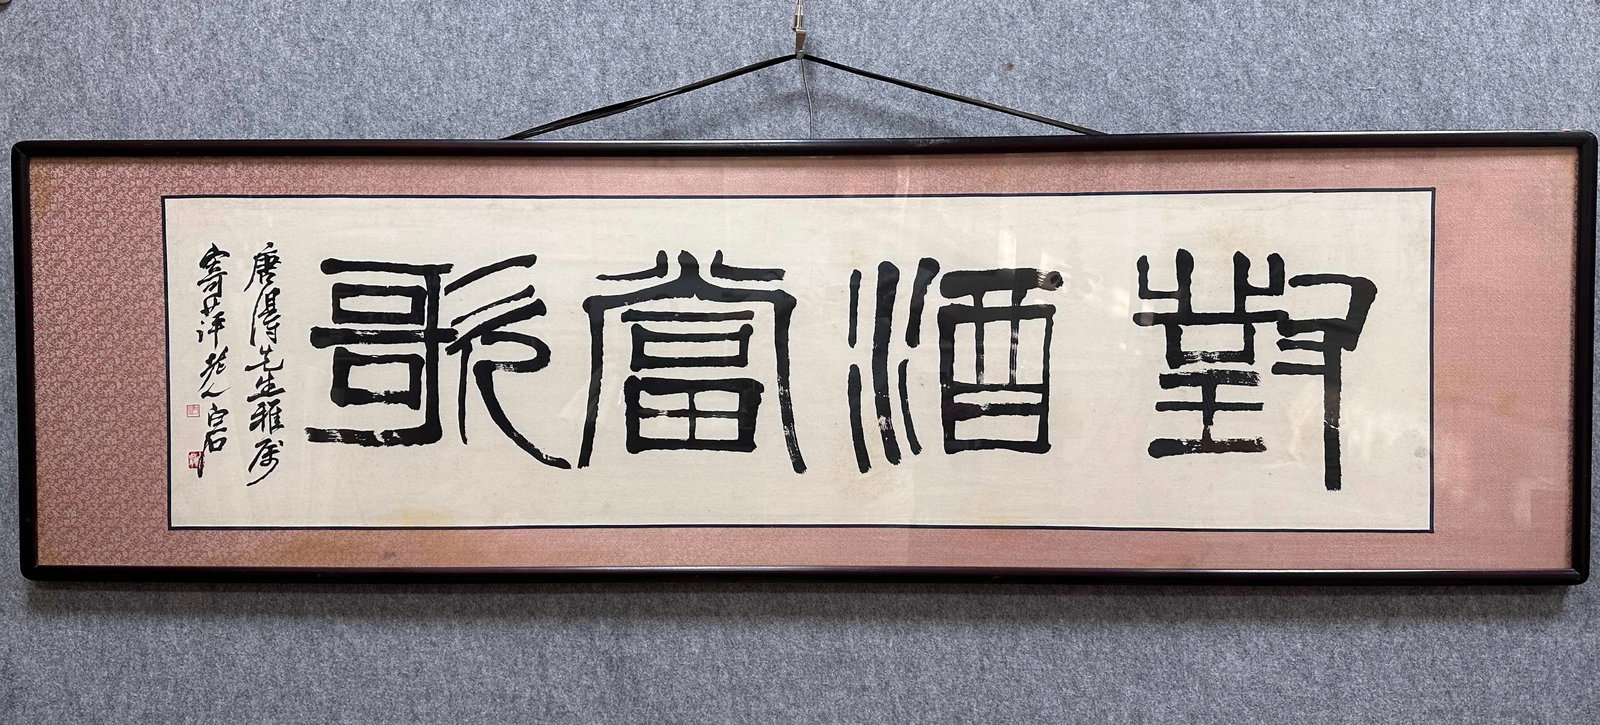 對酒當歌
唐得先生雅属
寄萍老人白石